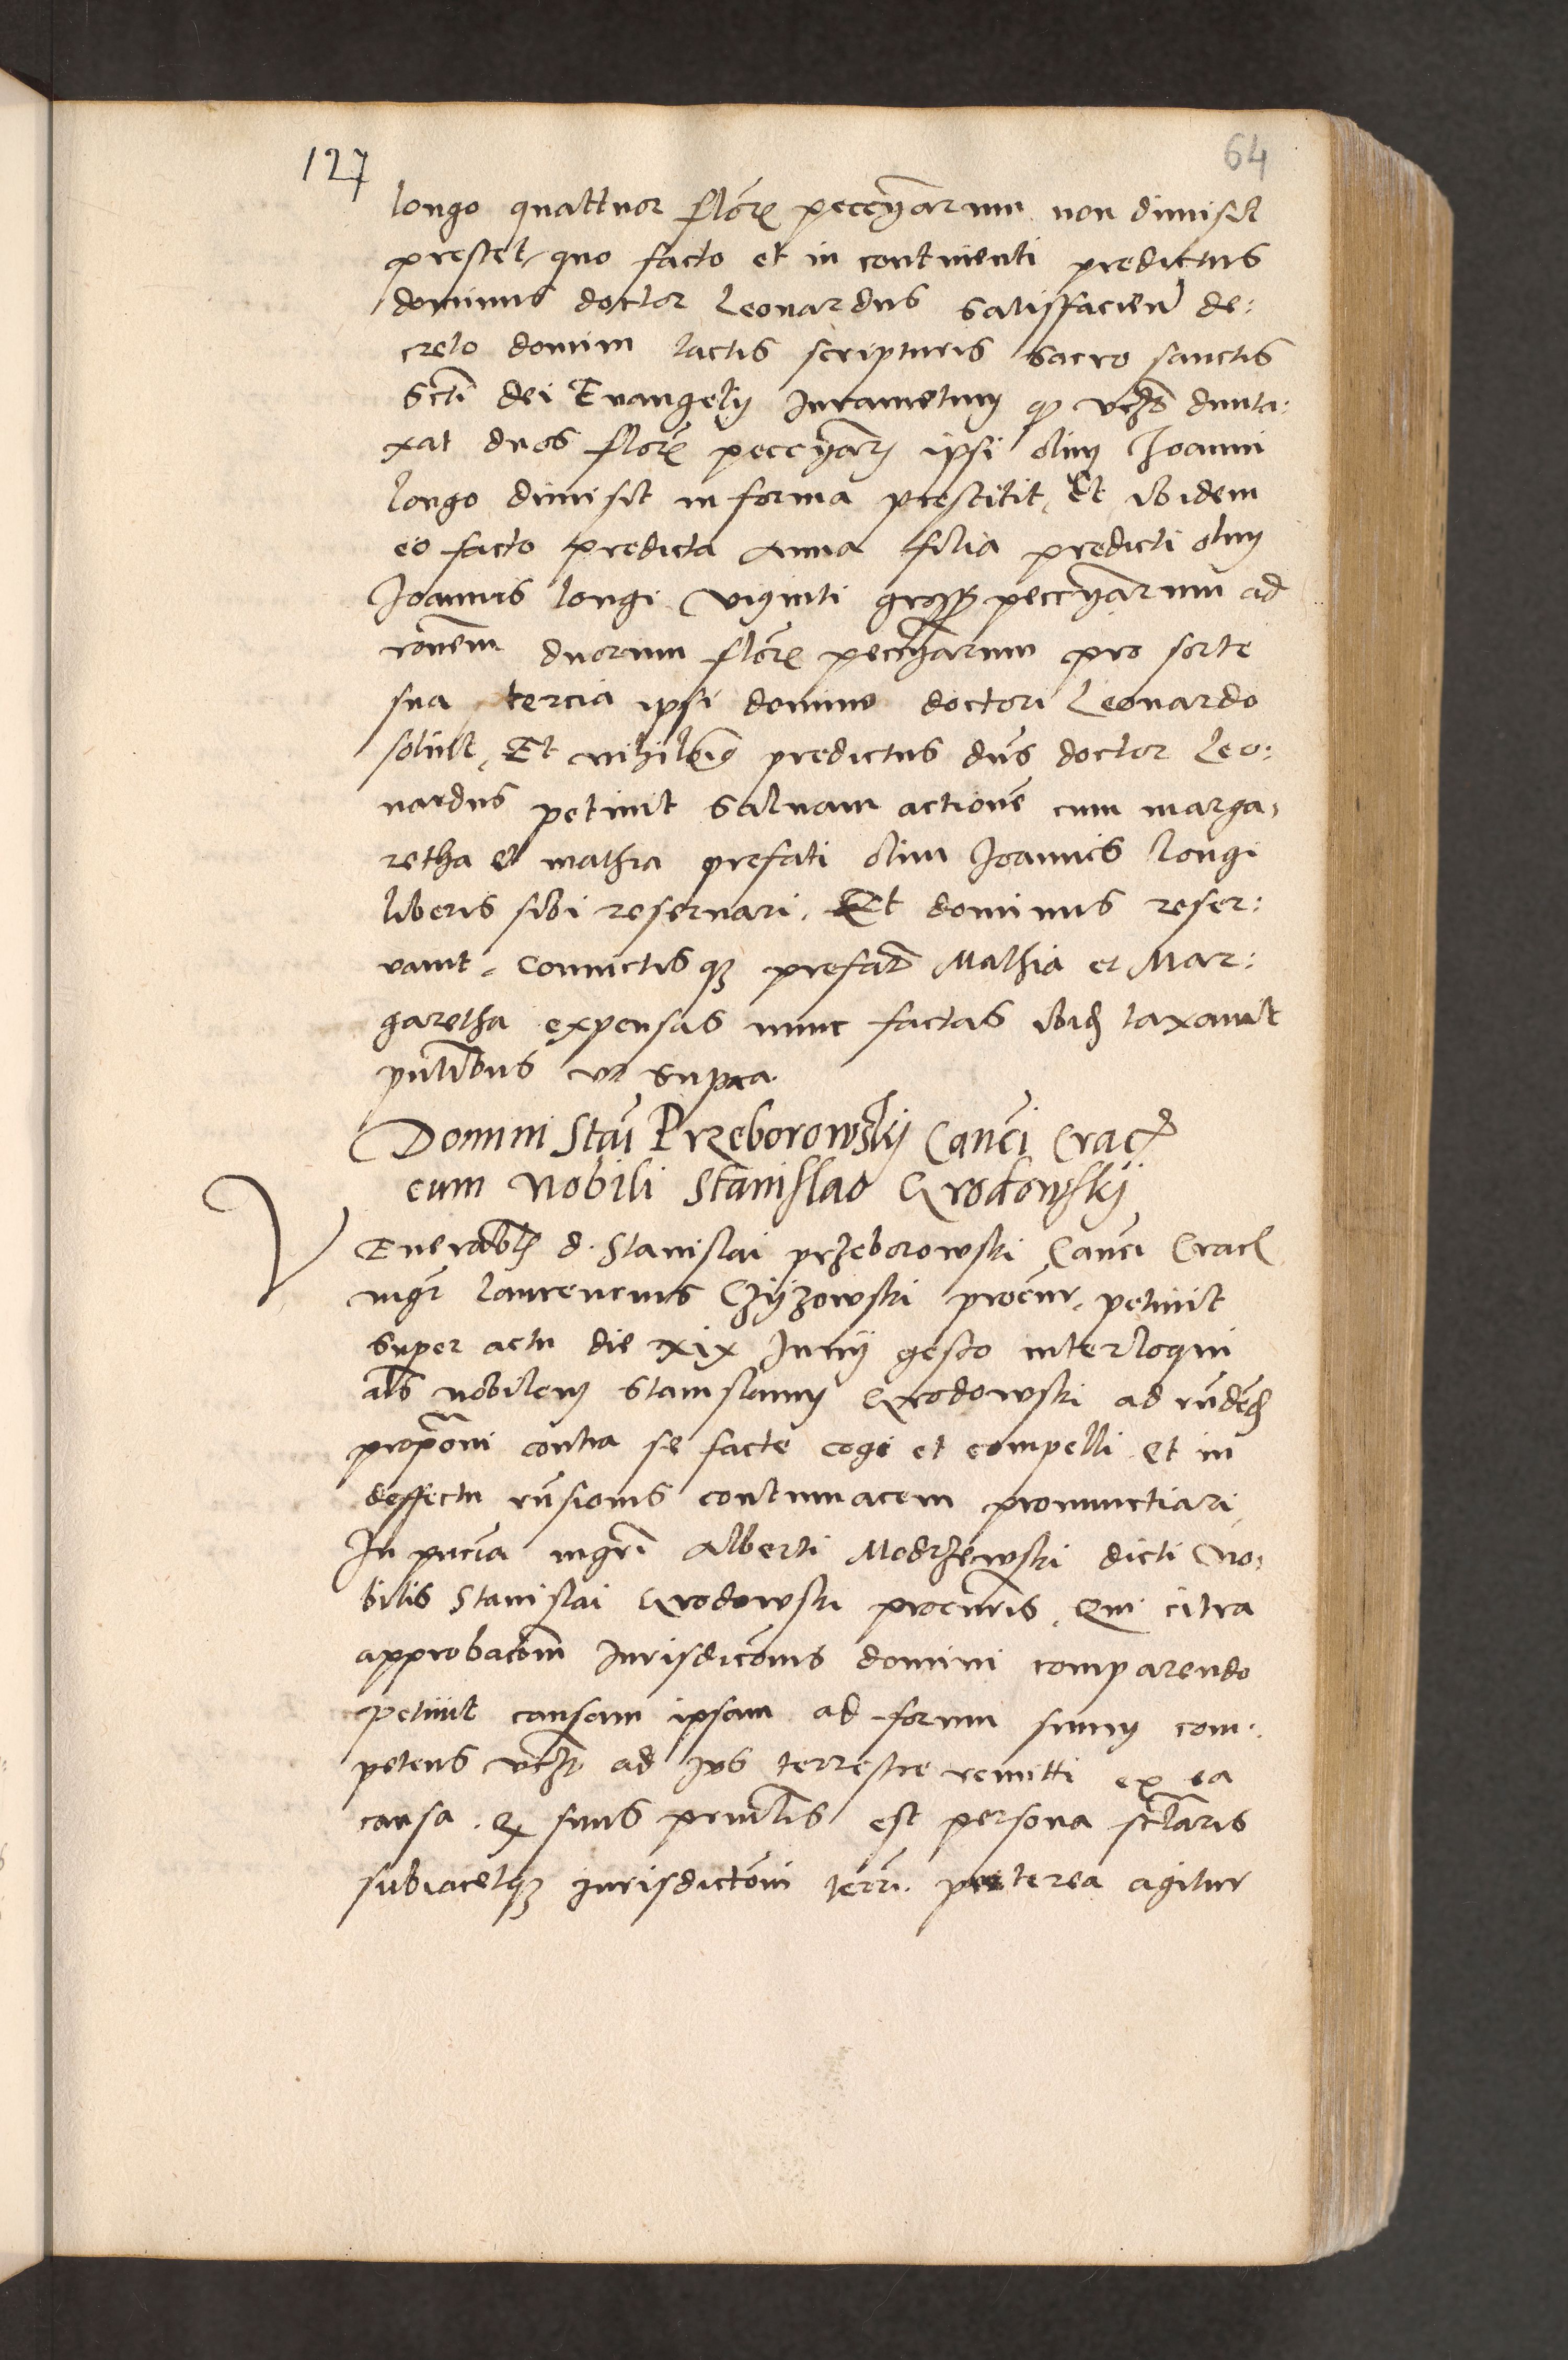 127
64
longo quattuor floreñ peccuñarum non dimisit
prestet, quo facto et in continenti predictus
dominus doctor Leonardus satisfacieñ de:
creto domini tactis scripturis sacro sanctis
scti dei Evangelij Iurametum qz vtzs dunta:
xat duos floreñ ipsi olim Joanni
longo dimisit in forma prestitit, Et ibidem
eo facto predicta Anna filia predicti olim
Joannis longi viginti gross ad
ronem duorum floreñ pro sorte
sua tercia ipsi domino doctori Leonardo
solvit, Et predictus dns doctor Leo:
nardus petiuit saluam actione cum marga:
retha et mathia prefati olim Joannis longi
liberis sibi reseruari. Et dominus reser:
uauit. Conuictisqz prefat Mathia et Mar:
garetha expensas nunc factas ibid taxauit
pñtibus vt supra
Domini Stai Przeborowskij Canci Crac
cum Nobili Stanislao Grodowskij
VEnerablis d. Stanislai przeborowski Canci Crac
mgr laurencius Czyżowski procur. petiuit
super actu die xix Junij gesto interloqui
als nobilem Stanislaum Grodowski ad rñdend
proponi contra se facte cogi et compelli et in
deffectu rñsionis contumacem pronunctiari,
In pñcia mgri Alberti Modrzewski dicti No:
bilis Stanislai Grodowski procuris. Qui citra
approbacom Jurisdicomis domini comparendo
petiuit causam ipsam ad forum suum com:
petens vtz ad Jus terrestre remitti ex ea
causa. Qz suus prinlis est persona sclaris
subiacetqz Jurisdictoni terri. preterea agitur